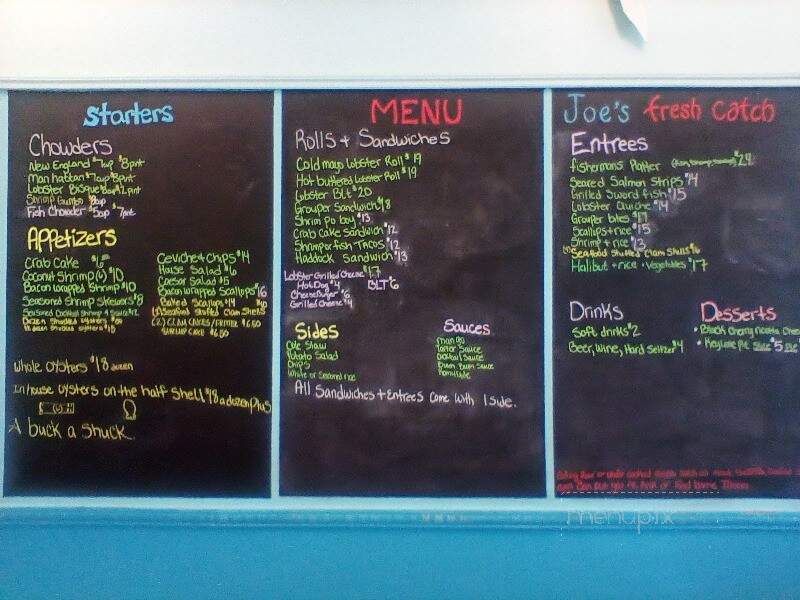 Starters
Chowders
New England $7cup $8pnt
Manhattan $7cup $8pnt
Lobster Bisque $8cup $12pnt
Shrimp Gumbo $8cup
Fish Chowder $5cup $7pnt
Appetizers
Crab Cake $6
Coconut Shrimp (6) $10
Bacon wrapped Shrimp $10
Seasoned Shrimp Skewers $8
Seasoned Cocktail Shrimp & Sauce $12
Dozen Smoked oysters
Ceviche + Chips $14
House Salad $6
Caesar Salad $5
Bacon Wrapped Scallops $16
Baked Scallops $14
Seafood Stuffed Clam Shells $10
(2) CLAM CAKES/FRITTER $6.50
SHRIMP CAKE $6.50
Whole oysters $18 dozen
In house oysters on the half Shell $18 a dozen plus
A buck a Shuck
MENU
Rolls + Sandwiches
Cold mayo Lobster Roll $19
Hot buttered Lobster Roll $19
Lobster BLT $20
Grouper Sandwich $18
Shrim Po boy $13
Crab Cake Sandwich $12
Shrimp or fish Tacos $12
Haddock Sandwich $13
Lobster Grilled Cheese $17
Hot Dog $4
BLT $6
Cheese Burger $6
Grilled Cheese $4
Sides
Cole Slaw
Potato Salad
Chips
White or Seasoned rice
Sauces
Tartar Sauce
Cocktail Sauce
Sauce
All Sandwiches + Entrees Come With 1 side.
Joe's fresh catch
Entrees
fishermans Platter $24
Seared Salmon Strips $14
Grilled Sword fish $15
Lobster Quiche $14
Grouper bites $17
Scallops + rice $15
Shrimp + rice $13
Seafood Stuffed Clam Shells $6
Halibut + rice + Vegetables $17
Drinks
Soft drinks $2
Beer, Wine, Hard Seltzer $4
Desserts
• Black Cherry ricotta Chee
• Keylime Pie Slice $5
menupix